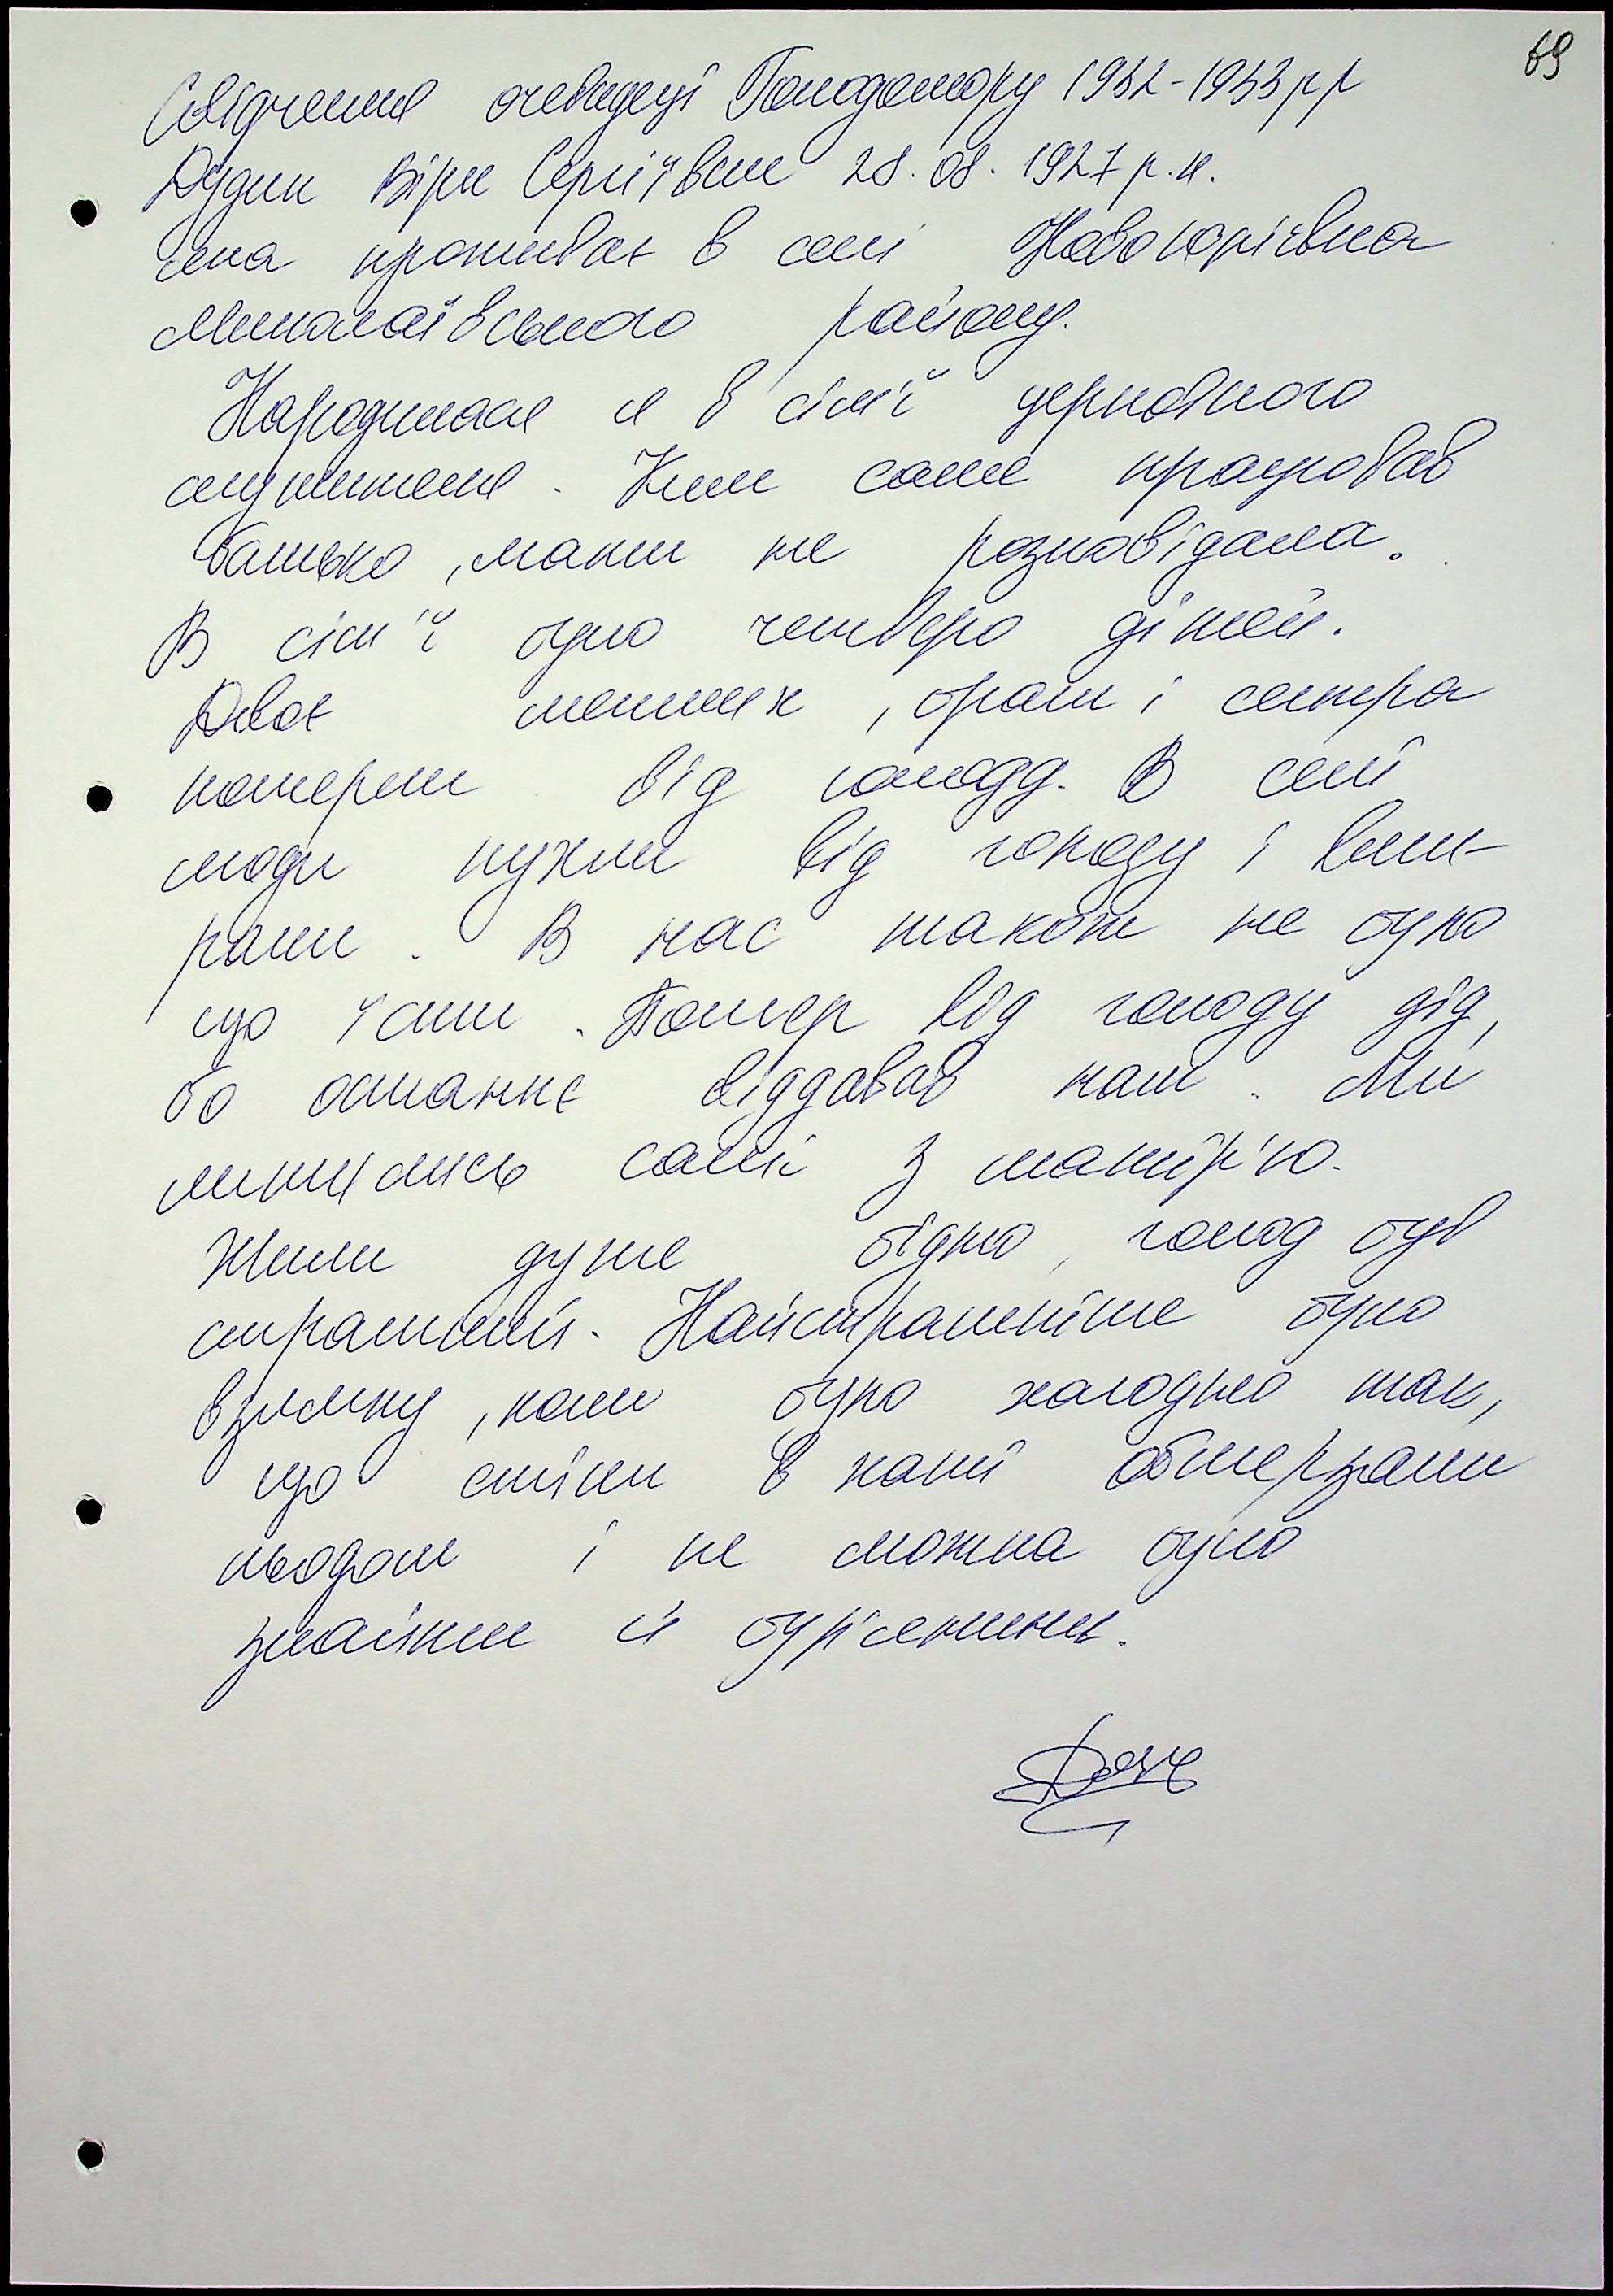 69
Свідчення очевидці Голодомору 1932-1933 рр
Дудки Віри Сергіївни 28.08.1927 р.н.
яка проживає в селі Новоюріївка
Миколаївського району.
Народилася я в сім'ї церковного
служителя. Ким саме працював
батько, мати не розповідала.
В сім'ї було четверо дітей.
Двоє менших, брат і сестра
померли від голоду. В селі
люди пухли від голоду і вми-
рали. В нас також не було
що їсти. Помер від голоду дід,
бо останнє віддавав нам. Ми
лишились самі з матір'ю.
Жили дуже бідно, голод був
страшний. Найстрашніше було
взимку, коли було холодно так,
що стіни в хаті обмерзали
льодом і не можна було
знайти й бур'янини.